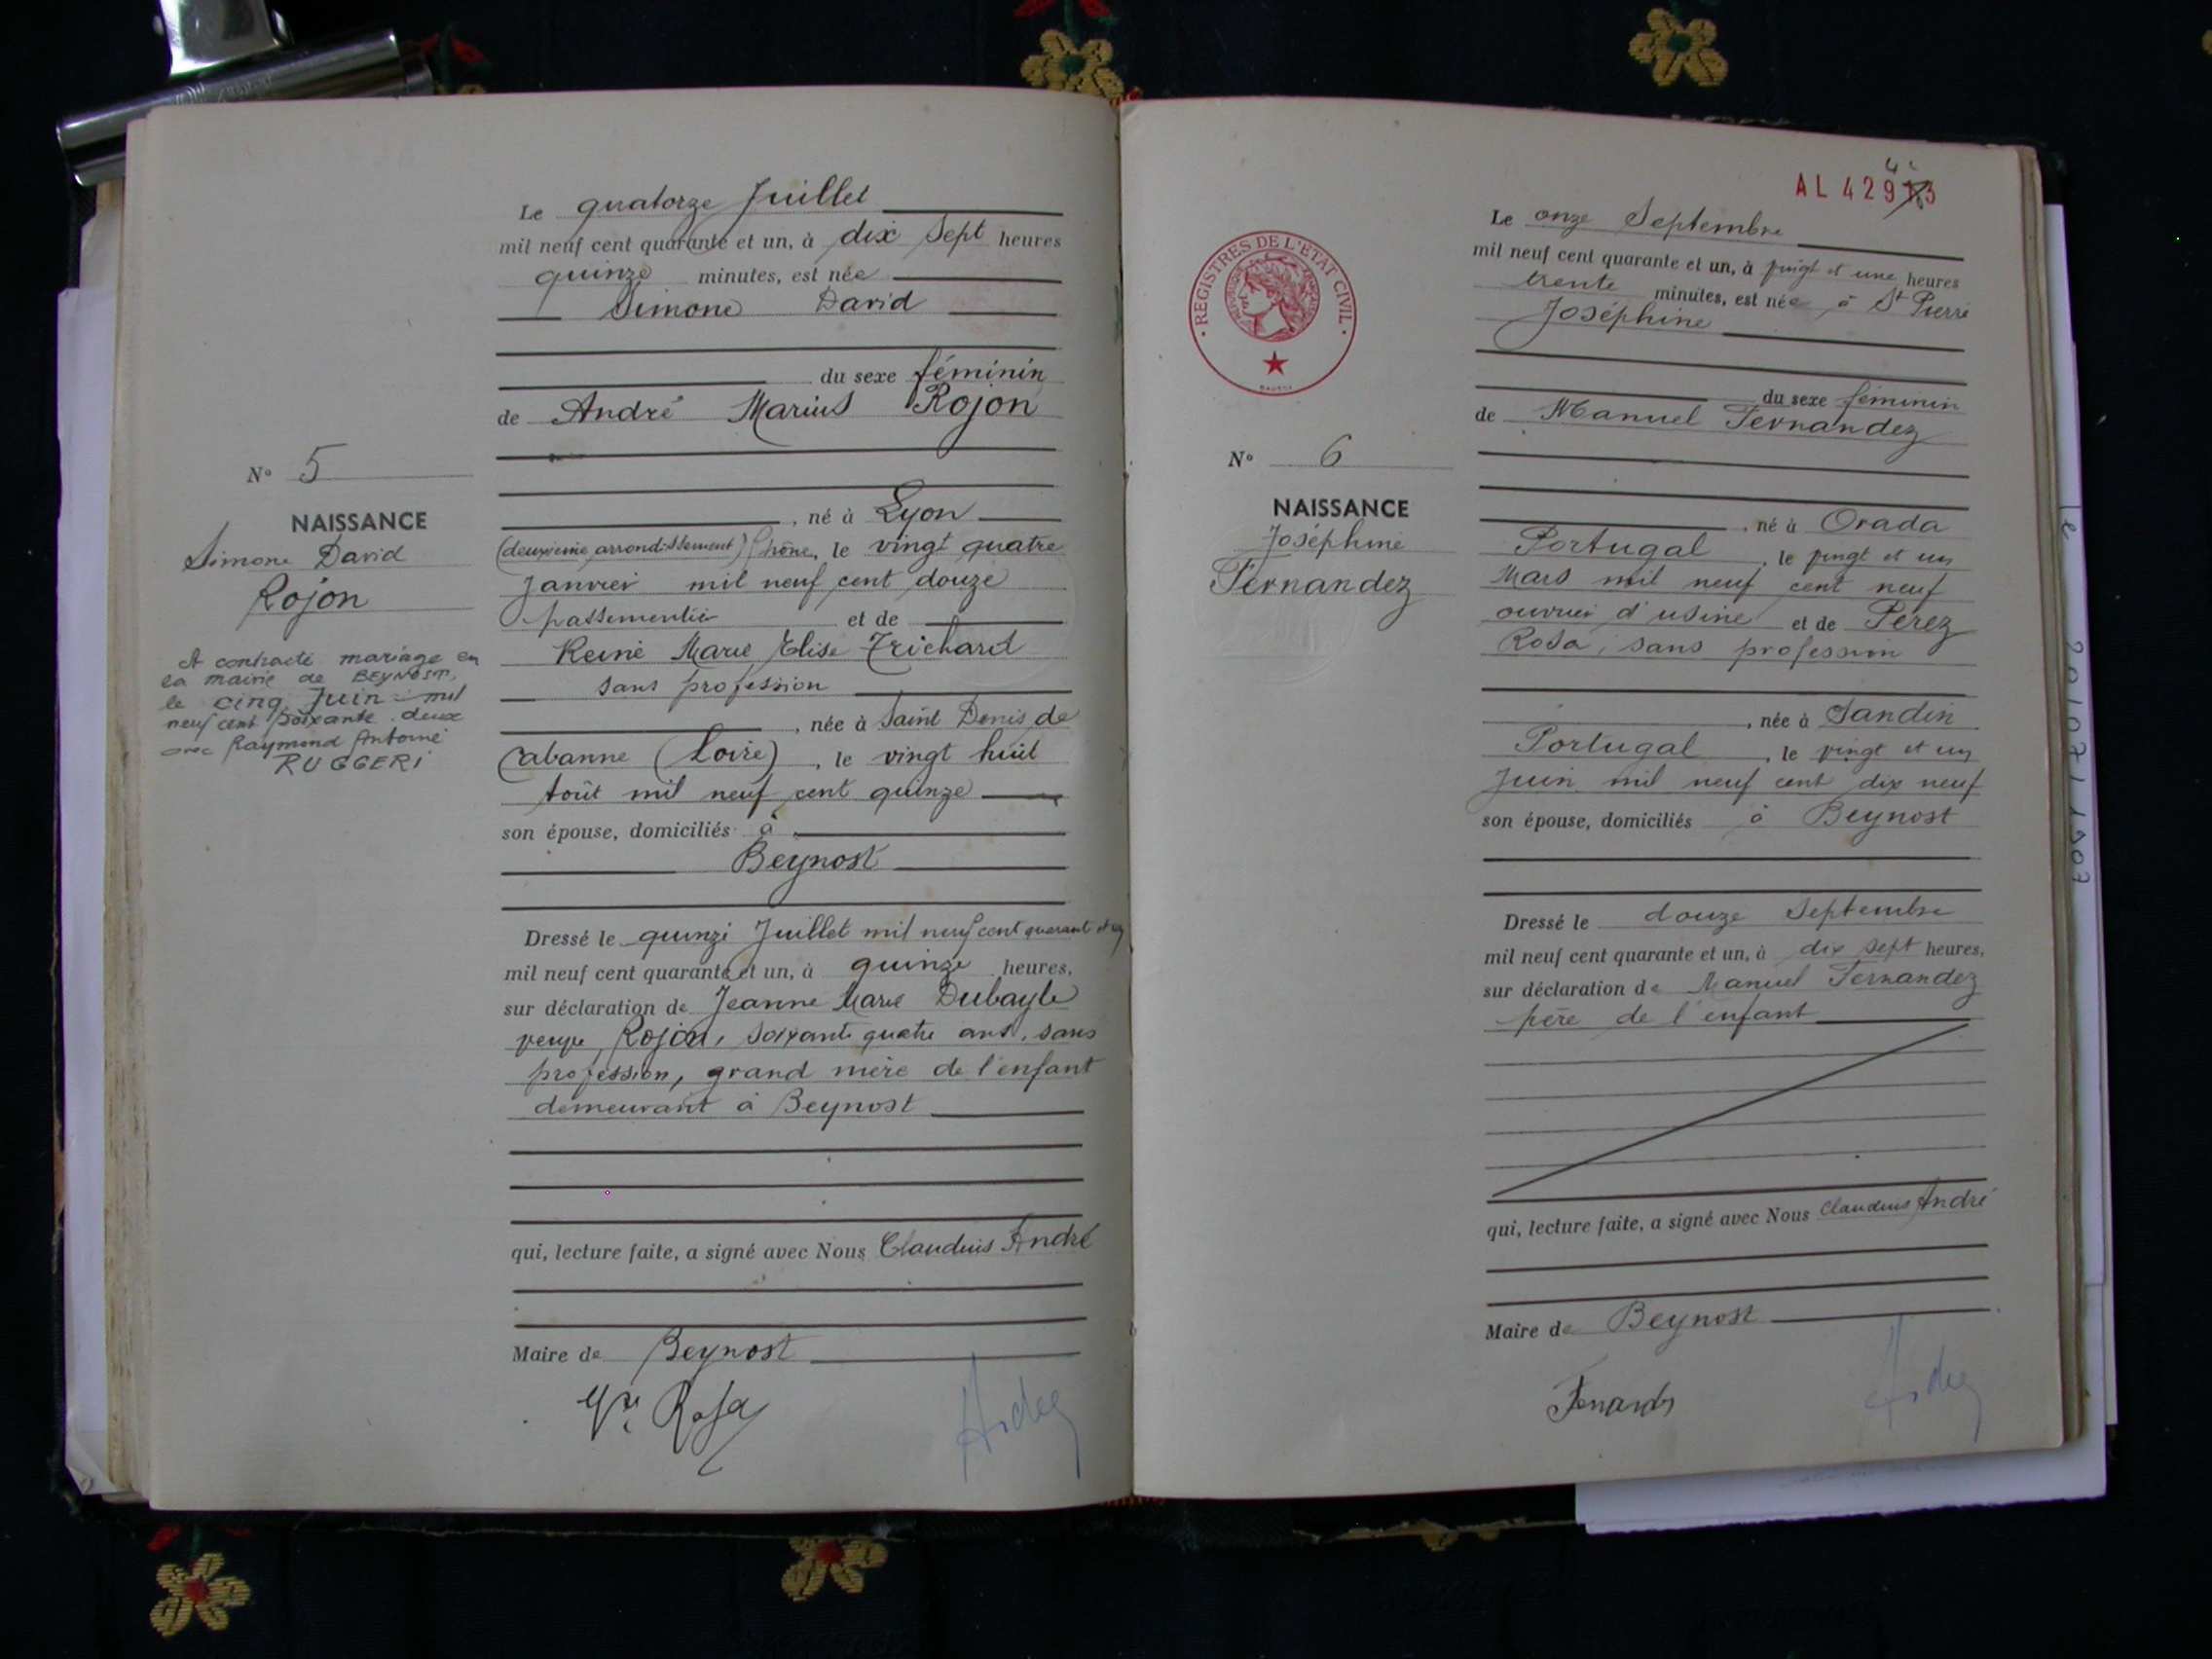 Le quatorze Juillet
mil neuf cent quarante et un, à dix sept heures
quinze minutes, est née
Simone David
du sexe féminin
de André Marius Rojon
N° 5
NAISSANCE
Simone David
Rojon
A contracté mariage en
la mairie de BEYNOST,
le cinq Juin mil
neuf cent soixante deux
avec Raymond Antoine
RUGGERI
, né à Lyon
(deuxième arrondissement) Rhône, le vingt quatre
Janvier mil neuf cent douze
passementier et de
Reine Marie Elise Trichard
sans profession
, née à Saint Denis de
Cabanne (Loire), le vingt huit
Août mil neuf cent quinze
son épouse, domiciliés à
Beynost
Dressé le quinze Juillet mil neuf cent quarant et un
mil neuf cent quarante et un, à quinze heures,
sur déclaration de Jeanne Marie Dubayle
veuve, Rojon, soixante quatre ans, sans
profession, grand mère de l'enfant
demeurant à Beynost
qui, lecture faite, a signé avec Nous Claudius André
Maire de Beynost
AL 429
REGISTRES DE L'ÉTAT CIVIL
Le onze Septembre
mil neuf cent quarante et un, à vingt et une heures
trente minutes, est née à St Pierre
Joséphine
du sexe féminin
de Manuel Fernandez
N° 6
NAISSANCE
Joséphine
Fernandez
, né à Orada
Portugal, le vingt et un
Mars mil neuf cent neuf
ouvrier d'usine et de Pérez
Rosa, sans profession
, née à Sandin
Portugal, le vingt et un
Juin mil neuf cent dix neuf
son épouse, domiciliés à Beynost
Dressé le douze Septembre
mil neuf cent quarante et un, à dix sept heures,
sur déclaration de Manuel Fernandez
père de l'enfant
qui, lecture faite, a signé avec Nous Claudius André
Maire de Beynost